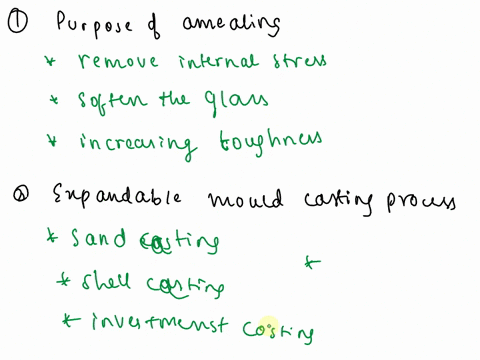 ① Purpose of annealing
* remove internal stress
* soften the glass
* increasing toughness
② Expandable mould casting process
* sand casting
*
* shell casting
* investmenst costing